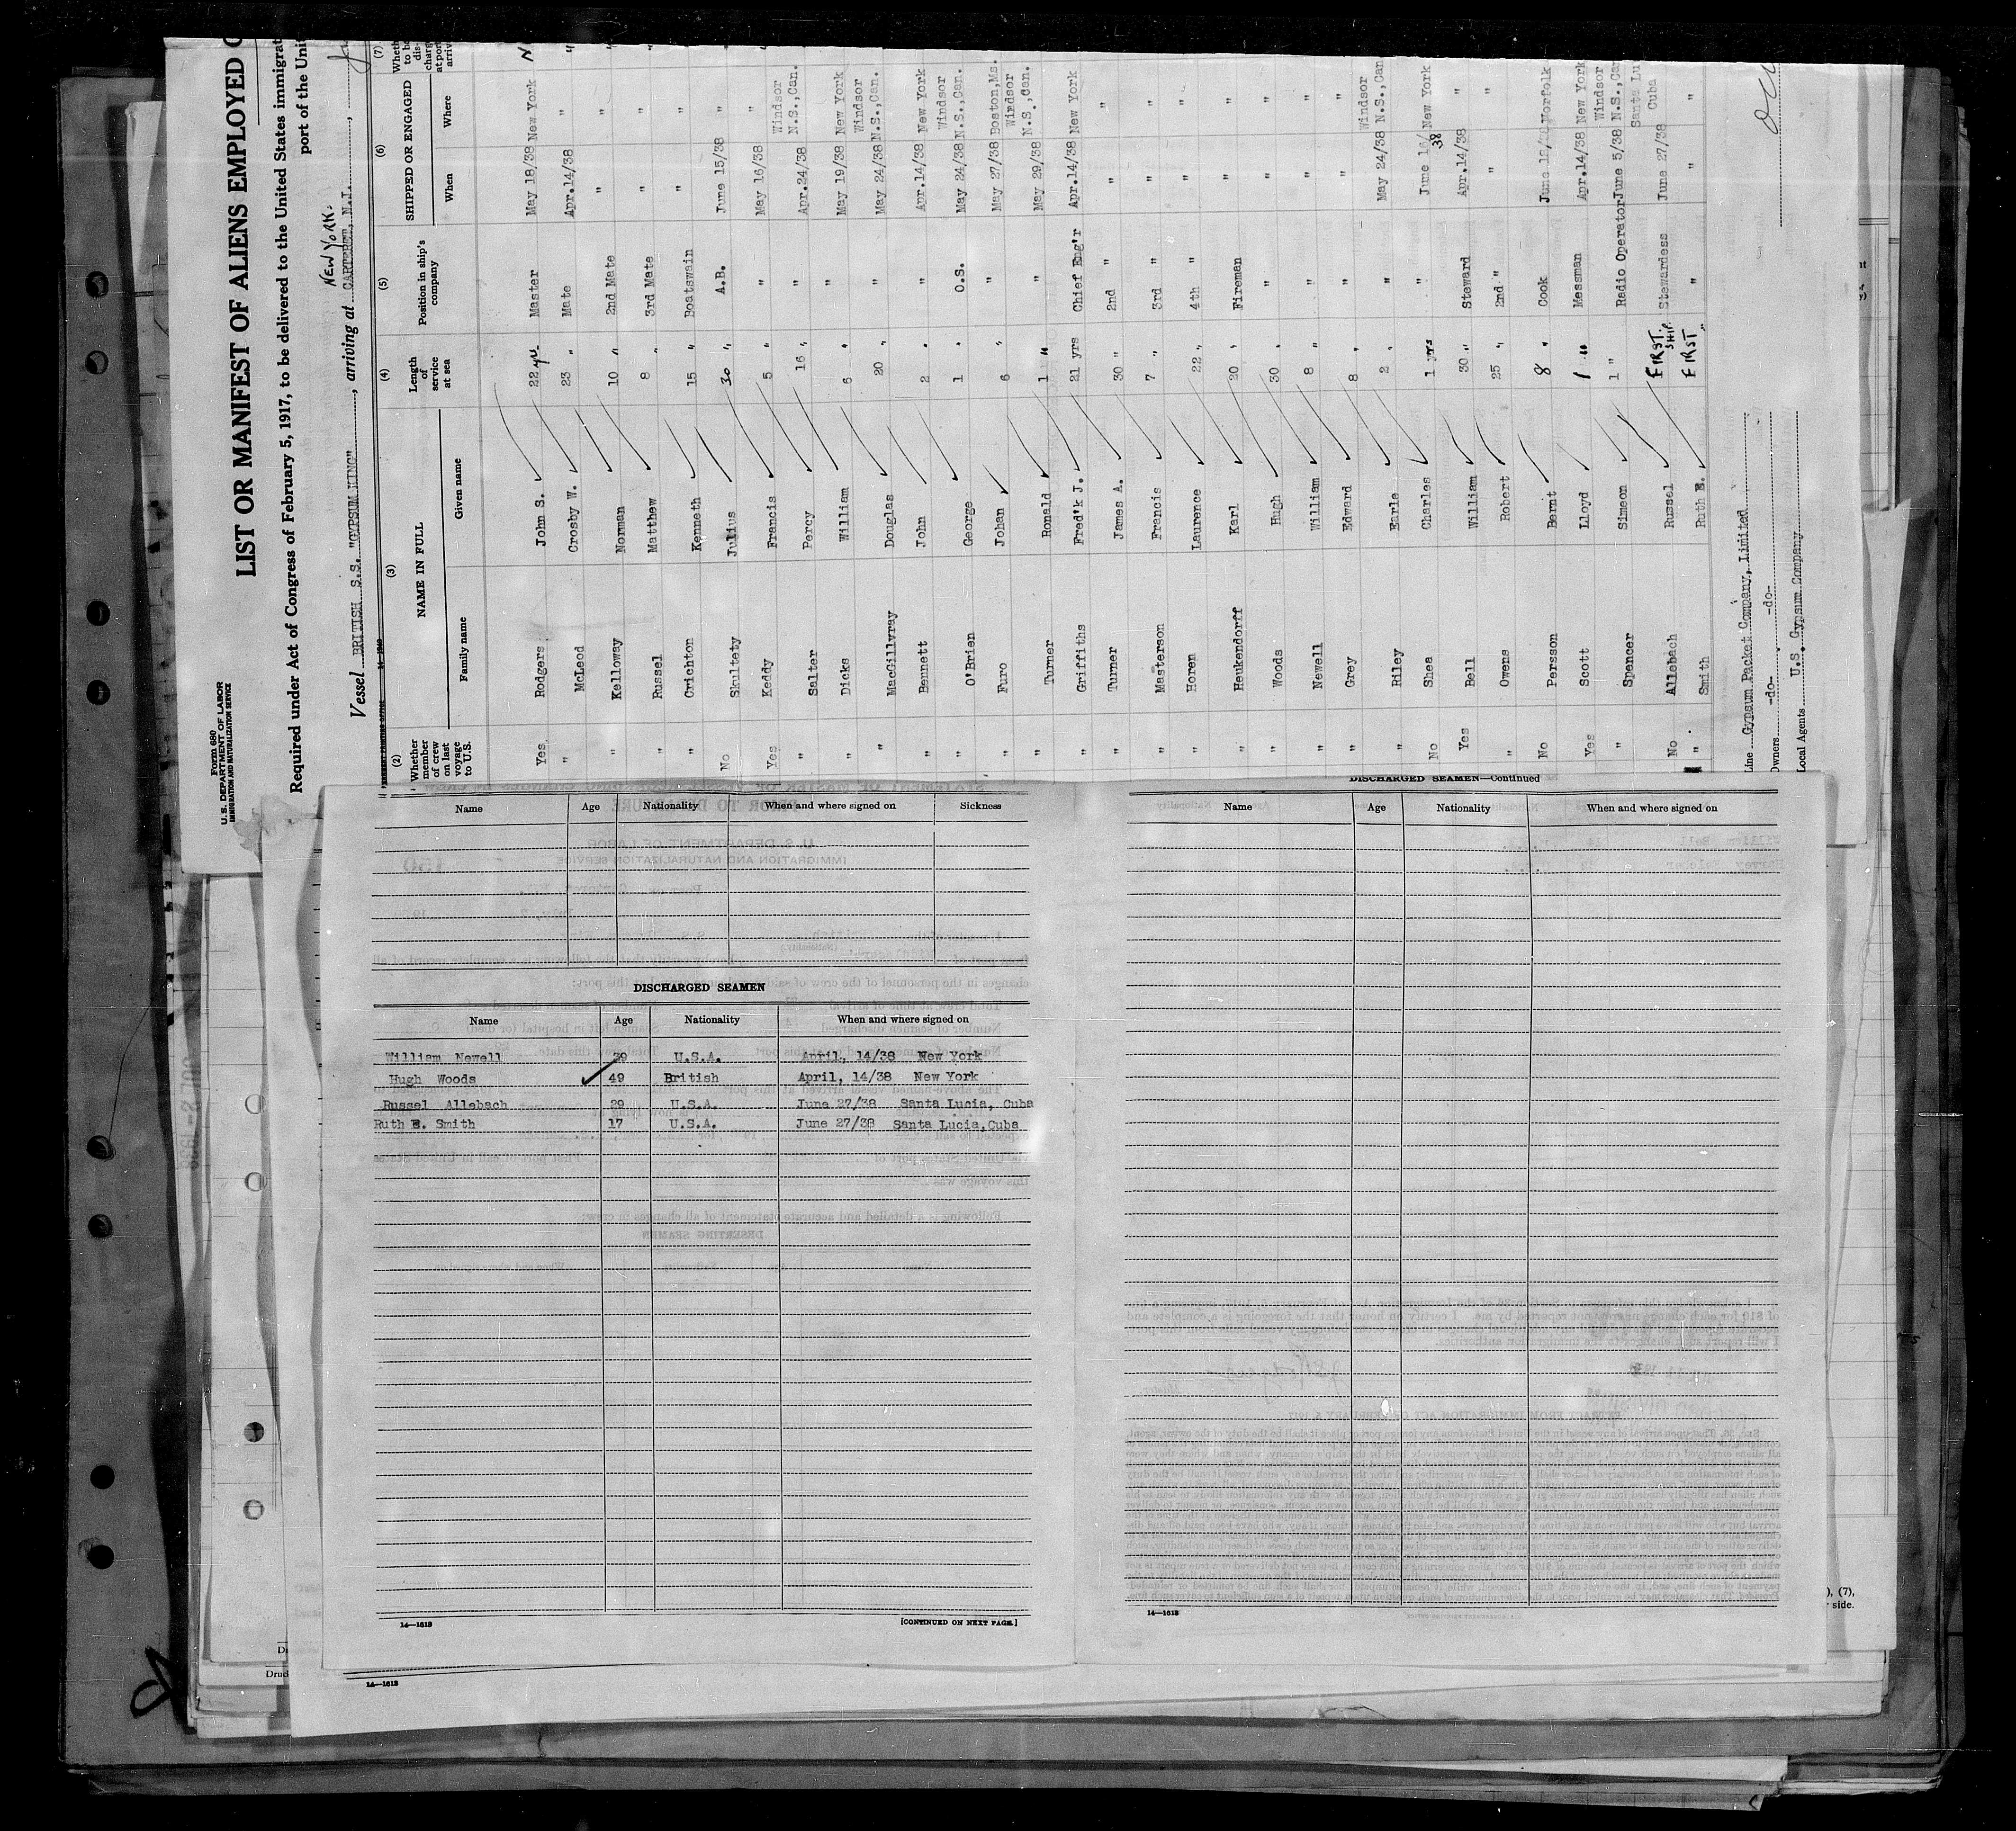 Form 680
U. S. DEPARTMENT OF LABOR
IMMIGRATION AND NATURALIZATION SERVICE
LIST OR MANIFEST OF ALIENS EMPLOYED
Required under Act of Congress of February 5, 1917, to be delivered to the United States immigrat
port of the Unit
NEW YORK.
Vessel BRITISH S.S. "GYPSUM KING", arriving at CARTERET, N.J.,
(2) (3) (4) (5) (6) (7)
Whether member of crew on last voyage to U.S. NAME IN FULL Length of service at sea Position in ship's company SHIPPED OR ENGAGED Wheth to be dis- charge at port arriv
Family name Given name When Where
Yes Rodgers John S. 22 yrs Master May 18/38 New York N
" McLeod Crosby W. 23 " Mate Apr.14/38 " "
" Kelloway Norman 10 " 2nd Mate " " "
Russel Matthew 8 " 3rd Mate " " "
" Crichton Kenneth 15 " Boatswain " "
No Skultety Julius 30 " A.B. June 15/38 "
Yes Keddy Francis 5 " " May 16/38 "
" Salter Percy 16 " " Apr.24/38 Windsor N.S.,Can.
" Dicks William 6 " " May 19/38 New York
" MacGillvray Douglas 20 " " May 24/38 Windsor N.S.,Can.
" Bennett John 2 " " Apr.14/38 New York
" O'Brien George 1 " O.S. May 24/38 Windsor N.S.,Can.
" Furo Johan 6 " " May 27/38 Boston,Ms.
" Turner Ronald 1 " " May 29/38 Windsor N.S.,Can.
Griffiths Fred'k J. 21 yrs Chief Eng'r Apr.14/38 New York
" Turner James A. 30 " 2nd " " "
" Masterson Francis 7 " 3rd " " "
" Horen Laurence 22 " 4th " " "
" Heukendorff Karl 20 " Fireman " "
" Woods Hugh 30 " " " "
" Newell William 8 " " " "
" Grey Edward 8 " " " "
" Riley Earle 2 " " May 24/38 Windsor N.S.,Can
No Shea Charles 1 yrs " June 15/38 New York
Yes Bell William 30 " Steward Apr.14/38 "
" Owens Robert 25 " 2nd " " "
No Persson Bernt 8 " Cook Norfolk
Yes Scott Lloyd 1 " Messman Apr.14/38 New York
" Spencer Simon 1 " Radio Operator June 5/38 Windsor N.S.,Can
No Allebach Russel FIRST SHIP. Stewardess June 27/38 Santa Lu Cuba
" Smith Ruth E. FIRST " " " "
Line Gypsum Packet Company, Limited
Owners -do- -do-
Local Agents U.S. Gypsum Company
Name Age Nationality When and where signed on Sickness
DISCHARGED SEAMEN
Name Age Nationality When and where signed on
William Newell 39 U.S.A. April, 14/38 New York
Hugh Woods 49 British April, 14/38 New York
Russel Allebach 29 U.S.A. June 27/38 Santa Lucia, Cuba
Ruth E. Smith 17 U.S.A. June 27/38 Santa Lucia,Cuba
14—1613
[CONTINUED ON NEXT PAGE.]
DISCHARGED SEAMEN—Continued
Name Age Nationality When and where signed on
14—1613
14—1613
), (7),
side.